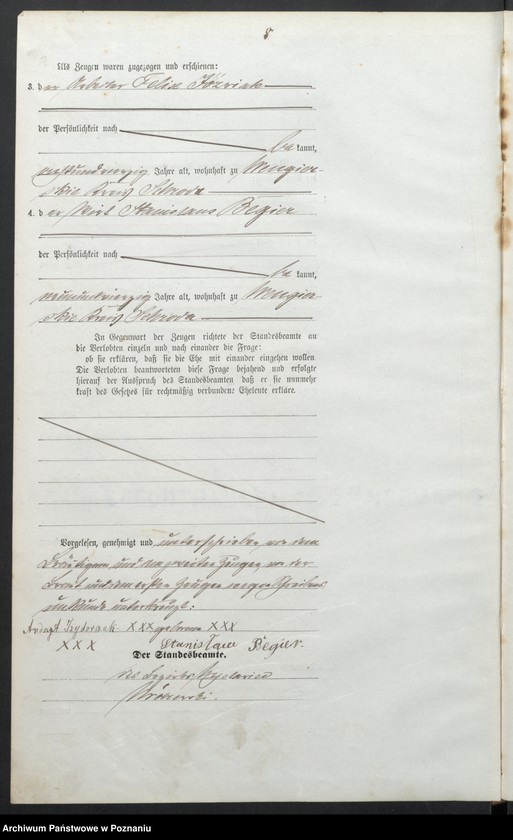 8
Als Zeugen waren zugezogen und erschienen:
3. der Arbeiter Felix Józwiak
der Persönlichkeit nach
bekannt,
Jahre alt, wohnhaft zu Wengier-
skie Kreis Schroda
4. der Wirt Stanislaus Begier
der Persönlichkeit nach
bekannt,
neunundvierzig Jahre alt, wohnhaft zu Wengier-
skie Kreis Schroda
In Gegenwart der Zeugen richtete der Standesbeamte an
die Verlobten einzeln und nach einander die Frage:
ob sie erklären, daß sie die Ehe mit einander eingehen wollen
Die Verlobten beantworteten diese Frage bejahend und erfolgte
hierauf der Ausspruch des Standesbeamten daß er sie nunmehr
kraft des Gesetzes für rechtmäßig verbundene Eheleute erkläre.
Vorgelesen, genehmigt und unterschrieben von dem
Bräutigam und dem zweiten Zeugen von der
Braut und dem ersten Zeugen wegen Schreibens
unkunde unterkreuzt:
XXX geborene XXX
XXX Stanisław Begier.
Der Standesbeamte.